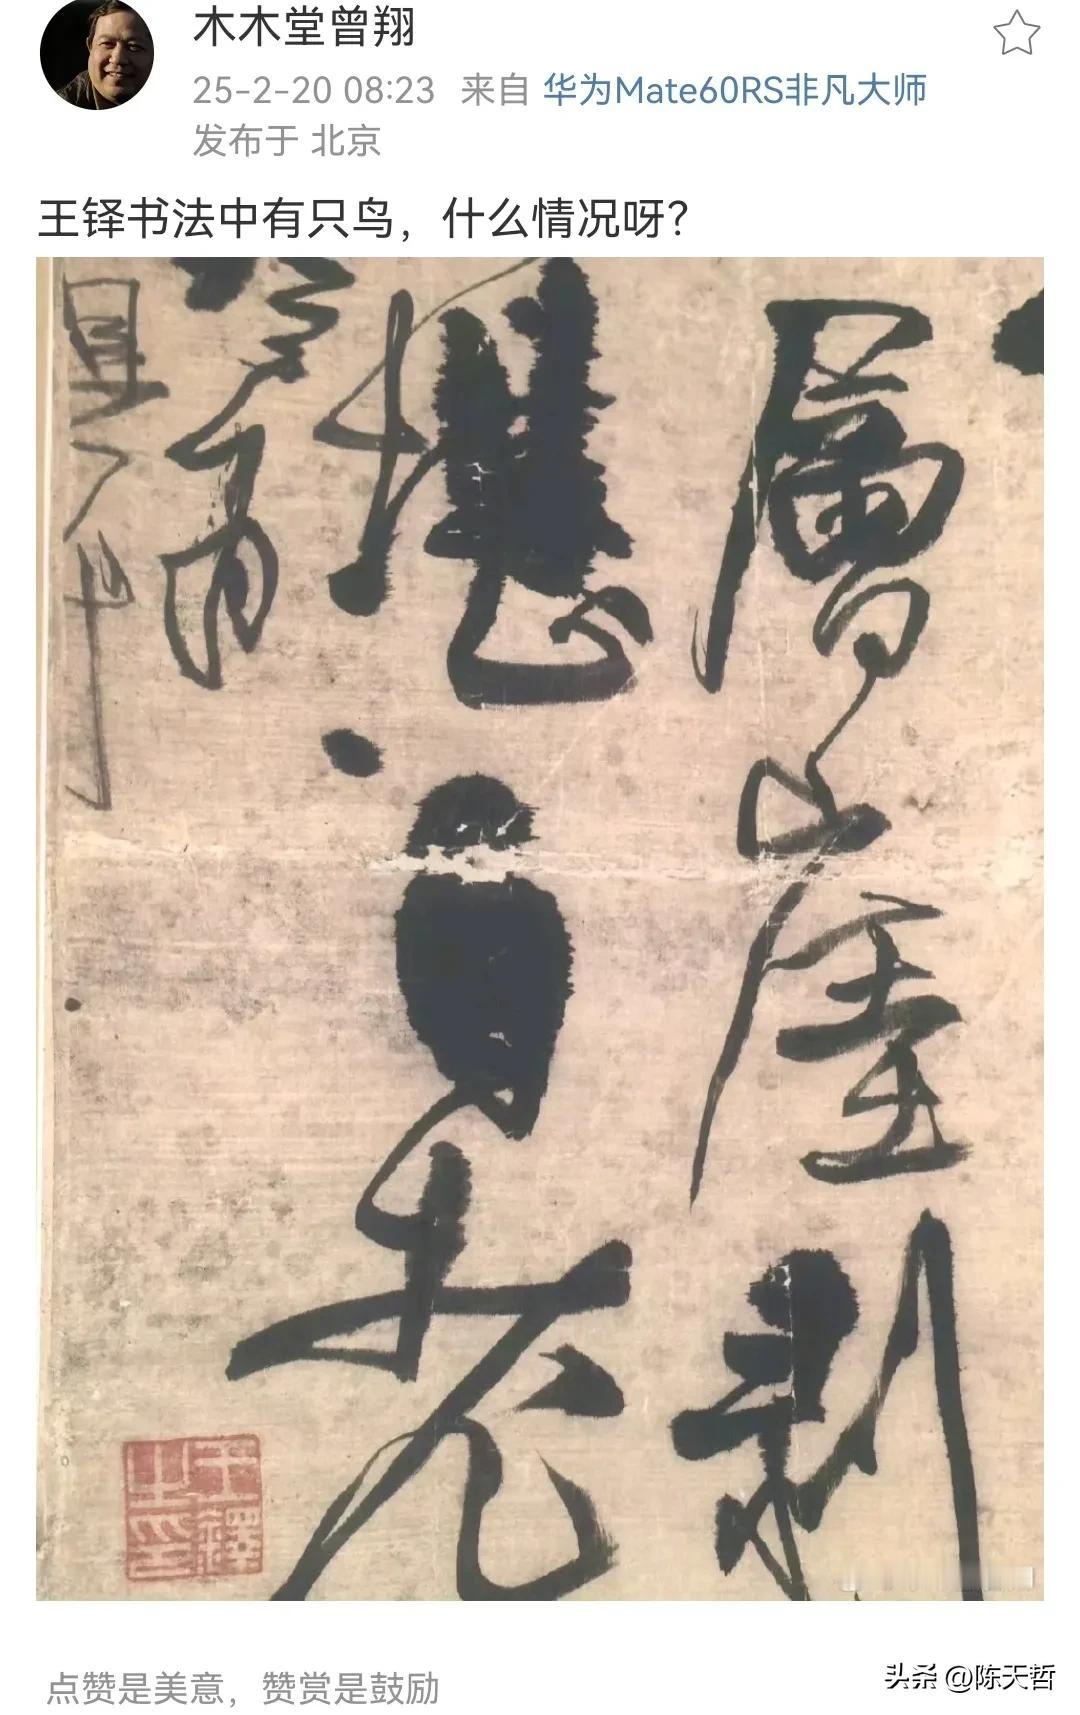 木木堂曾翔
25-2-20 08:23 来自 华为Mate60RS非凡大师
发布于 北京
王铎书法中有只鸟，什么情况呀？
層崖剩
堪自老
王鐸之印
点赞是美意，赞赏是鼓励
头条 @陈天哲